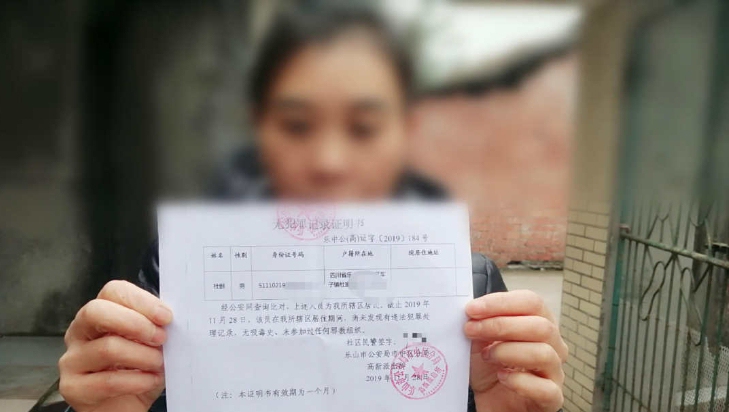 无犯罪记录证明书
乐中公(高)证字〔2019〕184号
姓名 性别 身份证号码 户籍所在地 现居住地址
男 51110219
四川省乐
经公安网查询比对,上述人员为我所辖区居民,截止2019年
11月28日,该员在我所辖区居住期间,尚未发现有违法犯罪处
理记录,无吸毒史,未参加过任何邪教组织。
社区民警签字:
乐山市公安局市中区分局
2019年11月28日
(注:本证明书有效期为一个月)